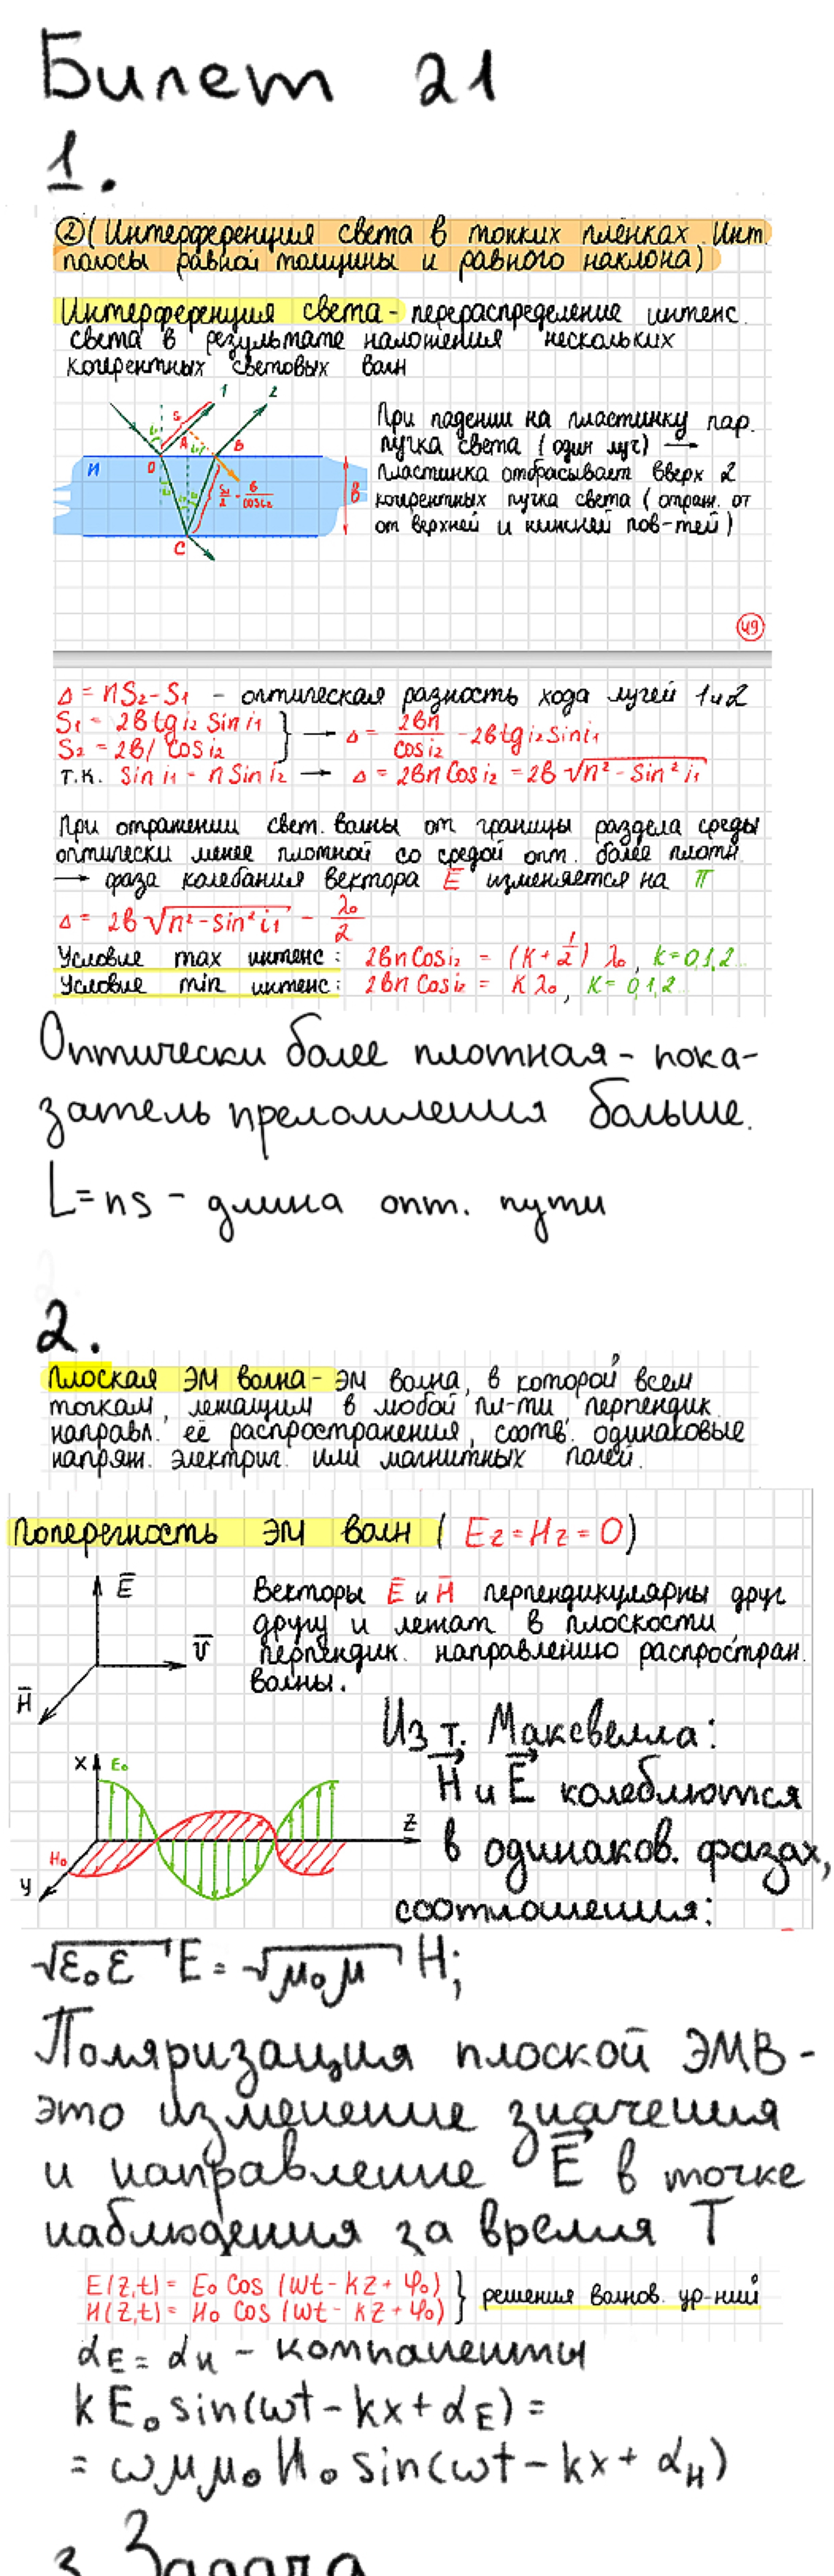 Билет 21
1.
②(Интерференция света в тонких плёнках. Инт.
полосы равной толщины и равного наклона)
Интерференция света - перераспределение интенс.
света в результате наложения нескольких
когерентных световых волн
При падении на пластинку пар.
пучка света (один луч) →
пластинка отбрасывает вверх 2
когерентных пучка света (отраж. от
от верхней и нижней пов-тей)
1
2
S₁
i₁
A
B
O
n
S₂/2 = b/cos i₂
b
C
49
Δ = nS₂ - S₁ - оптическая разность хода лучей 1 и 2
S₁ = 2b tg i₂ Sin i₁
S₂ = 2b/ Cos i₂
} → Δ = 2bn/Cos i₂ - 2b tg i₂ Sin i₁
т.к. Sin i₁ = n Sin i₂ → Δ = 2bn Cos i₂ = 2b √(n² - Sin² i₁)
При отражении свет. волны от границы раздела среды
оптически менее плотной со средой опт. более плотн.
→ фаза колебания вектора E̅ изменяется на π
Δ = 2b √(n² - Sin² i₁) - λ₀/2
Условие max интенс: 2bn Cos i₂ = (K + 1/2) λ₀, k = 0,1,2...
Условие min интенс: 2bn Cos i₂ = K λ₀, K = 0,1,2...
Оптически более плотная - пока-
затель преломления больше.
L = ns - длина опт. пути
2.
Плоская ЭМ волна - ЭМ волна, в которой всем
точкам, лежащим в любой пл-ти перпендик.
направл. её распространения, соотв. одинаковые
напряж. электрич. или магнитных полей.
Поперечность ЭМ волн ( E_z = H_z = 0)
E̅
V̅
H̅
Векторы E̅ и H̅ перпендикулярны друг
другу и лежат в плоскости,
перпендик. направлению распростран.
волны.
Из т. Максвелла:
H⃗ и E⃗ колеблются
в одинаков. фазах,
соотношения:
X
E₀
Z
H₀
У
√(ε₀ε) E = √(μ₀μ) H;
Поляризация плоской ЭМВ -
это изменение значения
и направление E⃗ в точке
наблюдения за время T
E(z,t) = E₀ Cos (ωt - kz + φ₀)
H(z,t) = H₀ Cos (ωt - kz + φ₀)
} решения волнов. ур-ний
α_E = α_H - компаненты
k E₀ sin(ωt - kx + α_E) =
= ω μ μ₀ H₀ sin(ωt - kx + α_H)
3. Задача